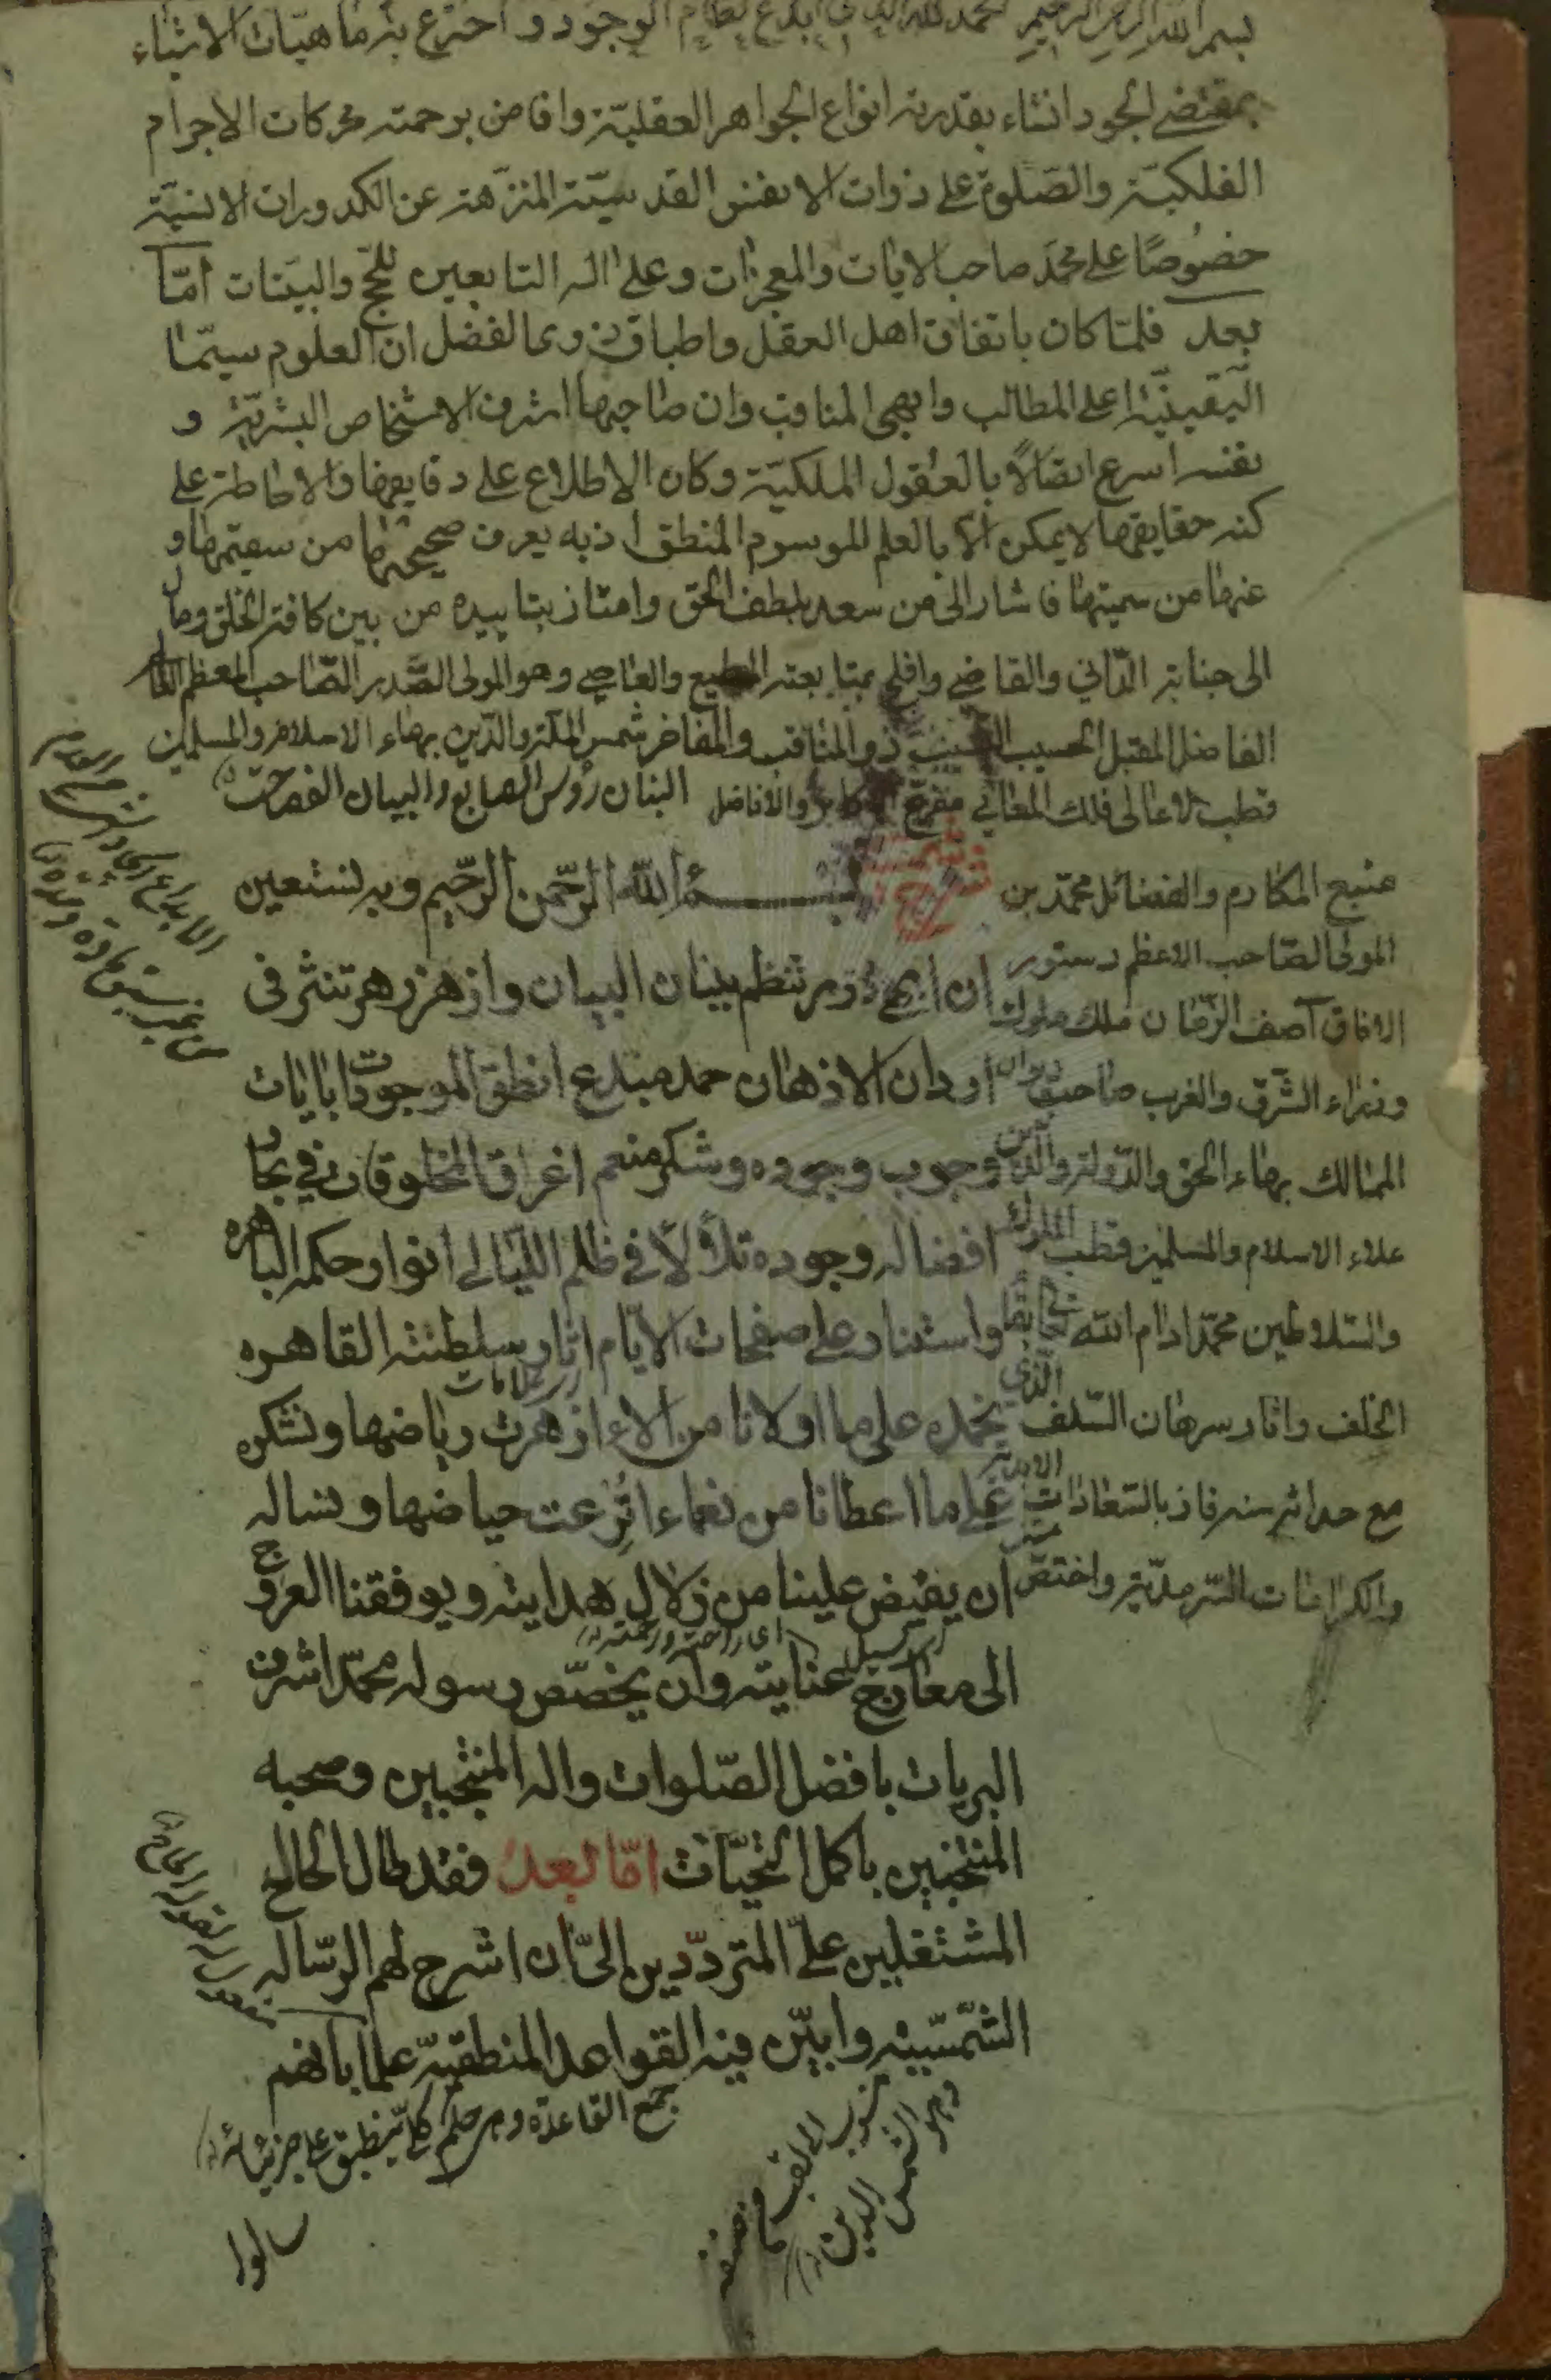 بسم الله الرحمن الرحيم الحمد لله الذى ابدع نظام الوجود و اخترع ماهيات الاشياء
بمقتضى الجود انشاء بقدرته انواع الجواهر العقليّة وافاض برحمته محركات الاجرام
الفلكيّة والصّلوة على ذوات الانفس القدسيّة المنزّهة عن الكدورات الانسيّة
خصُوصًا على محمّد صاحب الايات والمعجزات وعلى اله التابعين للحجج والبيّنات امّا
بعد فلمّا كان باتفاق اهل العقل واطباق ذوى الفضل ان العلوم سيّما
اليقينيّة اعلى المطالب وابهى المناقب وان صاحبها اشرف الاشخاص البشريّة و
نفسه اسرع اتصالًا بالعقول الملكيّة وكان الاطلاع على دقايقها والاحاطة على
كنه حقايقها لا يمكن الا بالعلم الموسوم المنطق اذ به يعرف صحيحها من سقيمها و
غثها من سمينها فاشار الى من سعد بلطف الحق وامتاز بتاييده من بين كافة الخلق ومال
الى جنابه الدّانى والقاصى وافلح بمتابعته المطيع والعاصى وهو المولى الصّدر الصّاحب المعظم
الفاضل المقبل الحسيب النسيب ذو المناقب والمفاخر شمس الملّة والدّين بهاء الاسلام والمسلمين
قطب الاعالى فلك المعالى والافاضل
البنان رؤس الاصابع والبيان الفصاحة
منبع المكارم والفضائل محمّد بن
المولى الصّاحب الاعظم دستور
الافاق آصف الزّمان ملك ملوك
وزراء الشّرق والغرب صاحب ديوان
الممالك بهاء الحق والدّولة والدّين
علاء الاسلام والمسلمين قطب الملوك
والسّلاطين محمّد ادام الله
الخلف واثار السّلف الذى
مع حداثة سنه فاز بالسّعادات الابديّة
والكرامات السّرمديّة واختصّ
شرح
بسم الله الرّحمن الرّحيم وبه نستعين
ان ابهى درر تنظم ببنان البيان وازهر زهر تنثر فى
اردان الاذهان حمد مبدع انطق الموجودات بايات
وجوب وجوده وشكر منعم اغرق المخلوقات فى بحار
افضاله وجوده تلألأ فى ظلم اللّيالى انوار حكمه الباهرة
واستنار على صفحات الايّام اثار سلطنته القاهره
نحمده على ما اولانا من الاء ازهرت رياضها ونشكره
على ما اعطانا من نعماء اترعت حياضها ونساله
ان يفيض علينا من زلال هدايته ويوفقنا العروج
الى معارج عنايته وان يخصّص رسوله محمّد اشرف
البريات بافضل الصّلوات واله المنتجبين وصحبه
المنتخبين باكمل التحيّات امّا بعد فقد طال الحاح
المشتغلين علىّ المتردّدين الىّ ان اشرح لهم الرّساله
الشّمسيّه وابيّن فيه القواعد المنطقيّة علما بانهم
جمع القاعدة وهى حكم كلّى ينطبق على جزئياته
سالوا